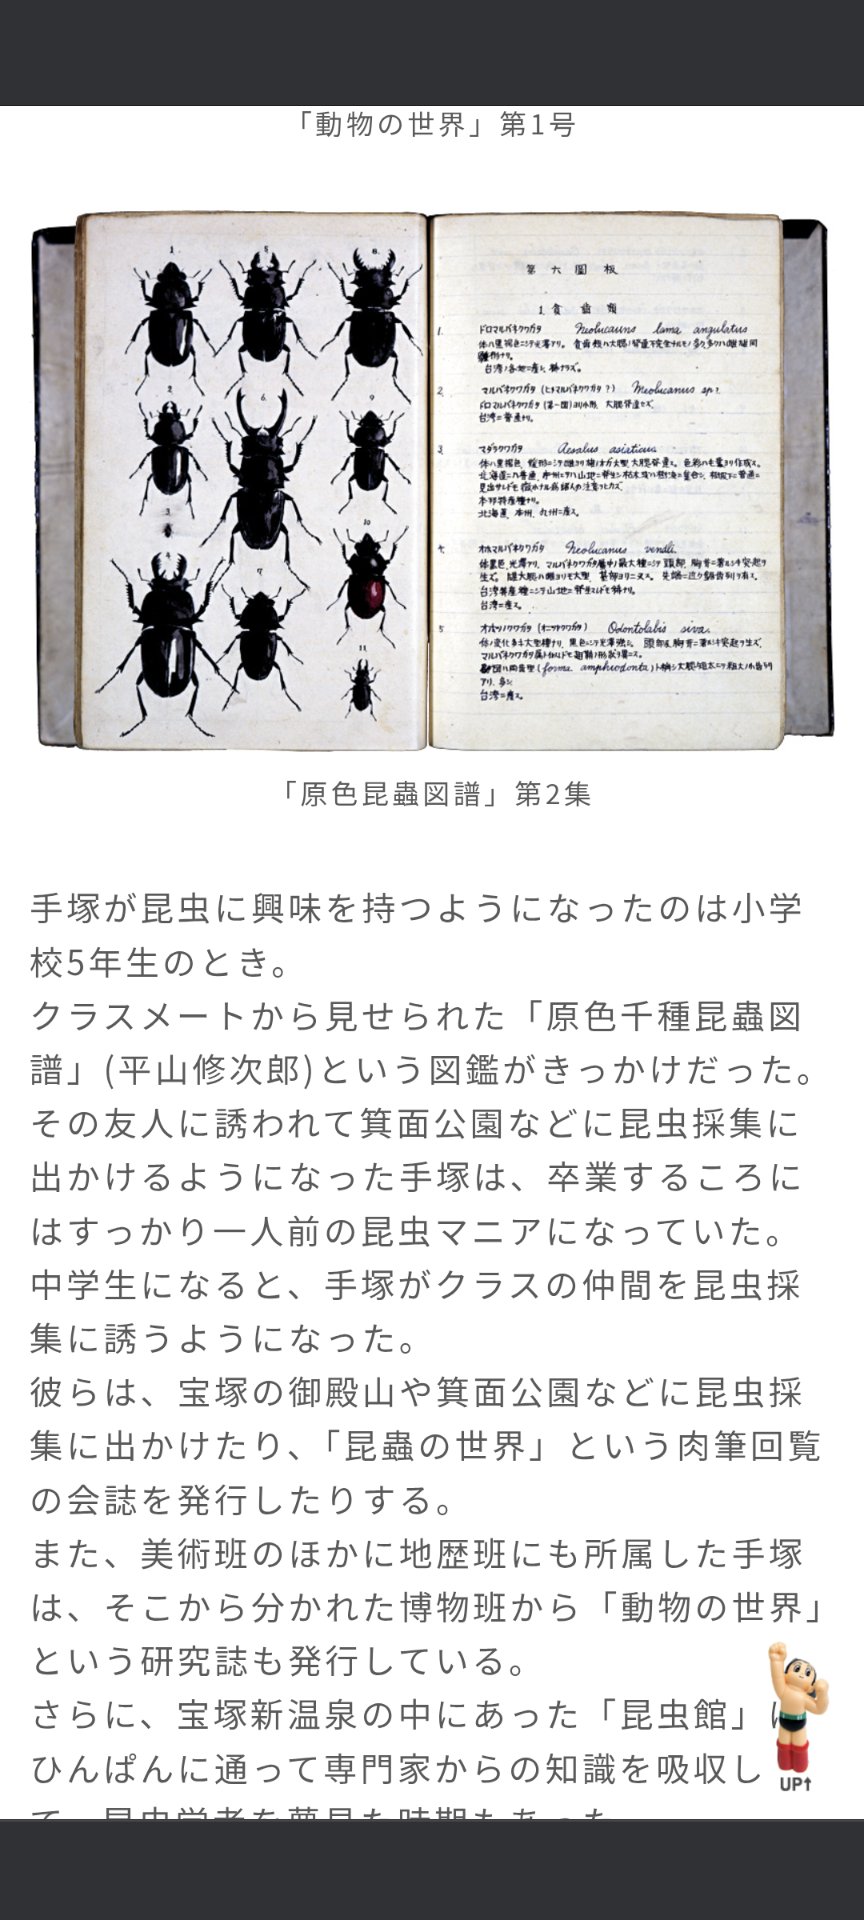 「動物の世界」第1号
1
5
8
2
6
9
3
10
4
7
11
第六圖板
1. 食歯類
1. ドロマルバネクワガタ Neolucanus lama angulatus
台湾ノ各地ニ産シ、稀ナラズ。
2. マルバネクワガタ (ヒメマルバネクワガタ?) Neolucanus sp?
台湾ニ普通ナリ。
3. マダラクワガタ Aesalus asiaticus.
本邦特産種ナリ。
北海道、本州、九州ニ産ス。
4. オホマルバネクワガタ Neolucanus vendli.
台湾ニ産ス。
5. Odontolabis siva.
(forma. amphiodonta)
台湾ニ産ス。
「原色昆蟲図譜」第2集
手塚が昆虫に興味を持つようになったのは小学
校5年生のとき。
クラスメートから見せられた「原色千種昆蟲図
譜」(平山修次郎)という図鑑がきっかけだった。
その友人に誘われて箕面公園などに昆虫採集に
出かけるようになった手塚は、卒業するころに
はすっかり一人前の昆虫マニアになっていた。
中学生になると、手塚がクラスの仲間を昆虫採
集に誘うようになった。
彼らは、宝塚の御殿山や箕面公園などに昆虫採
集に出かけたり、「昆蟲の世界」という肉筆回覧
の会誌を発行したりする。
また、美術班のほかに地歴班にも所属した手塚
は、そこから分かれた博物班から「動物の世界」
という研究誌も発行している。
さらに、宝塚新温泉の中にあった「昆虫館」に
ひんぱんに通って専門家からの知識を吸収し
て、昆虫学者を夢見た時期もあった
UP↑